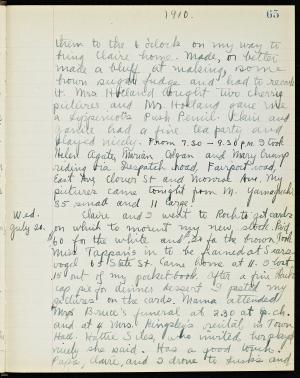 1910. 65
them to the 6 o'clocks on my way to
bring Claire home. Made, or better
made a bluff at making, some
brown sugar fudge and had to recook
it. Mrs Holland bought two cherry
pictures and Mr. Holland gave me
a Push Pencil. Claire and
had a fine tea party and
played nicely. From 7.30 - 9.30 P.M. I took
Helen Agate, Marian Colgan and Mary Crump
riding via Despatch road, Fairport road,
East Ave Clover St and Monroe Ave. My
pictures came tonight from M. Yamaguchi
35 small and 11 large.
Wed. Claire and I went to Roch to get cards
July 20. on which to mount my new, stock. Paid
60 for the white and for the brown. Took
Miss Tappan's in to be framed at
State St. Came home at I lost
15 out of my pocketbook. After a fine
pie for dinner dessert I pasted my
pictures on the cards. Mama attended
Mrs Bruce's funeral at 2.30 at ch.
and at 4 Mrs. Kingsley's recital in Town
Hall. Hattie Siles, who invited her, played
nicely she said. Has a good touch.
Papa, Claire, and I drove to and